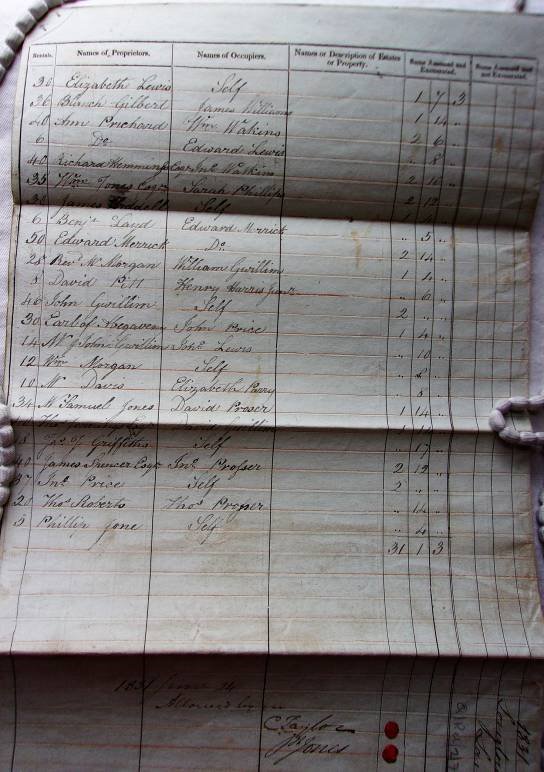 Rentals. Names of Proprietors. Names of Occupiers. Names or Description of Estates or Property. Sums Assessed and Exonerated. Sums Assessed and not Exonerated.
30 Elizabeth Lewis Self 1 7 3
26 Blanch Gilbert James Williams 1 14 "
40 Ann Prichard Wm Watkins 2 6 "
6 Do Edward Lewis " 8 "
40 Richard Hemming Esqr Jno Watkins 2 16 "
35 Wm Jones Esqr Sarah Phillips 2 12 "
30 James Self 1
6 Benjn Edward Merrick " 5 "
50 Edward Merrick Do 2 14 "
25 Revd Mr Morgan William Gwillim 1 4 "
8 David Pitt Henry Harris Junr " 6 "
46 John Gwillim Self 2 " "
30 Earl of Abegaveny John Price " 4 "
14 Mr John Gwillim Jno Lewis " 10 "
12 Wm Morgan Self " 8 "
10 Mr Davis Elizabeth Parry " 8 "
34 Mr Samuel Jones David Proser 1 14 "
Griffiths Self " 17 "
40 James Spencer Esqr Jno Prosser 2 12 "
37 Jno Price Self 2 " "
20 Thos Roberts Thos Proper " 14 "
5 Phillip Jone Self " 4 "
31 1 3
1831 June 24
Allowed by us
C Taylor
Jones
1831